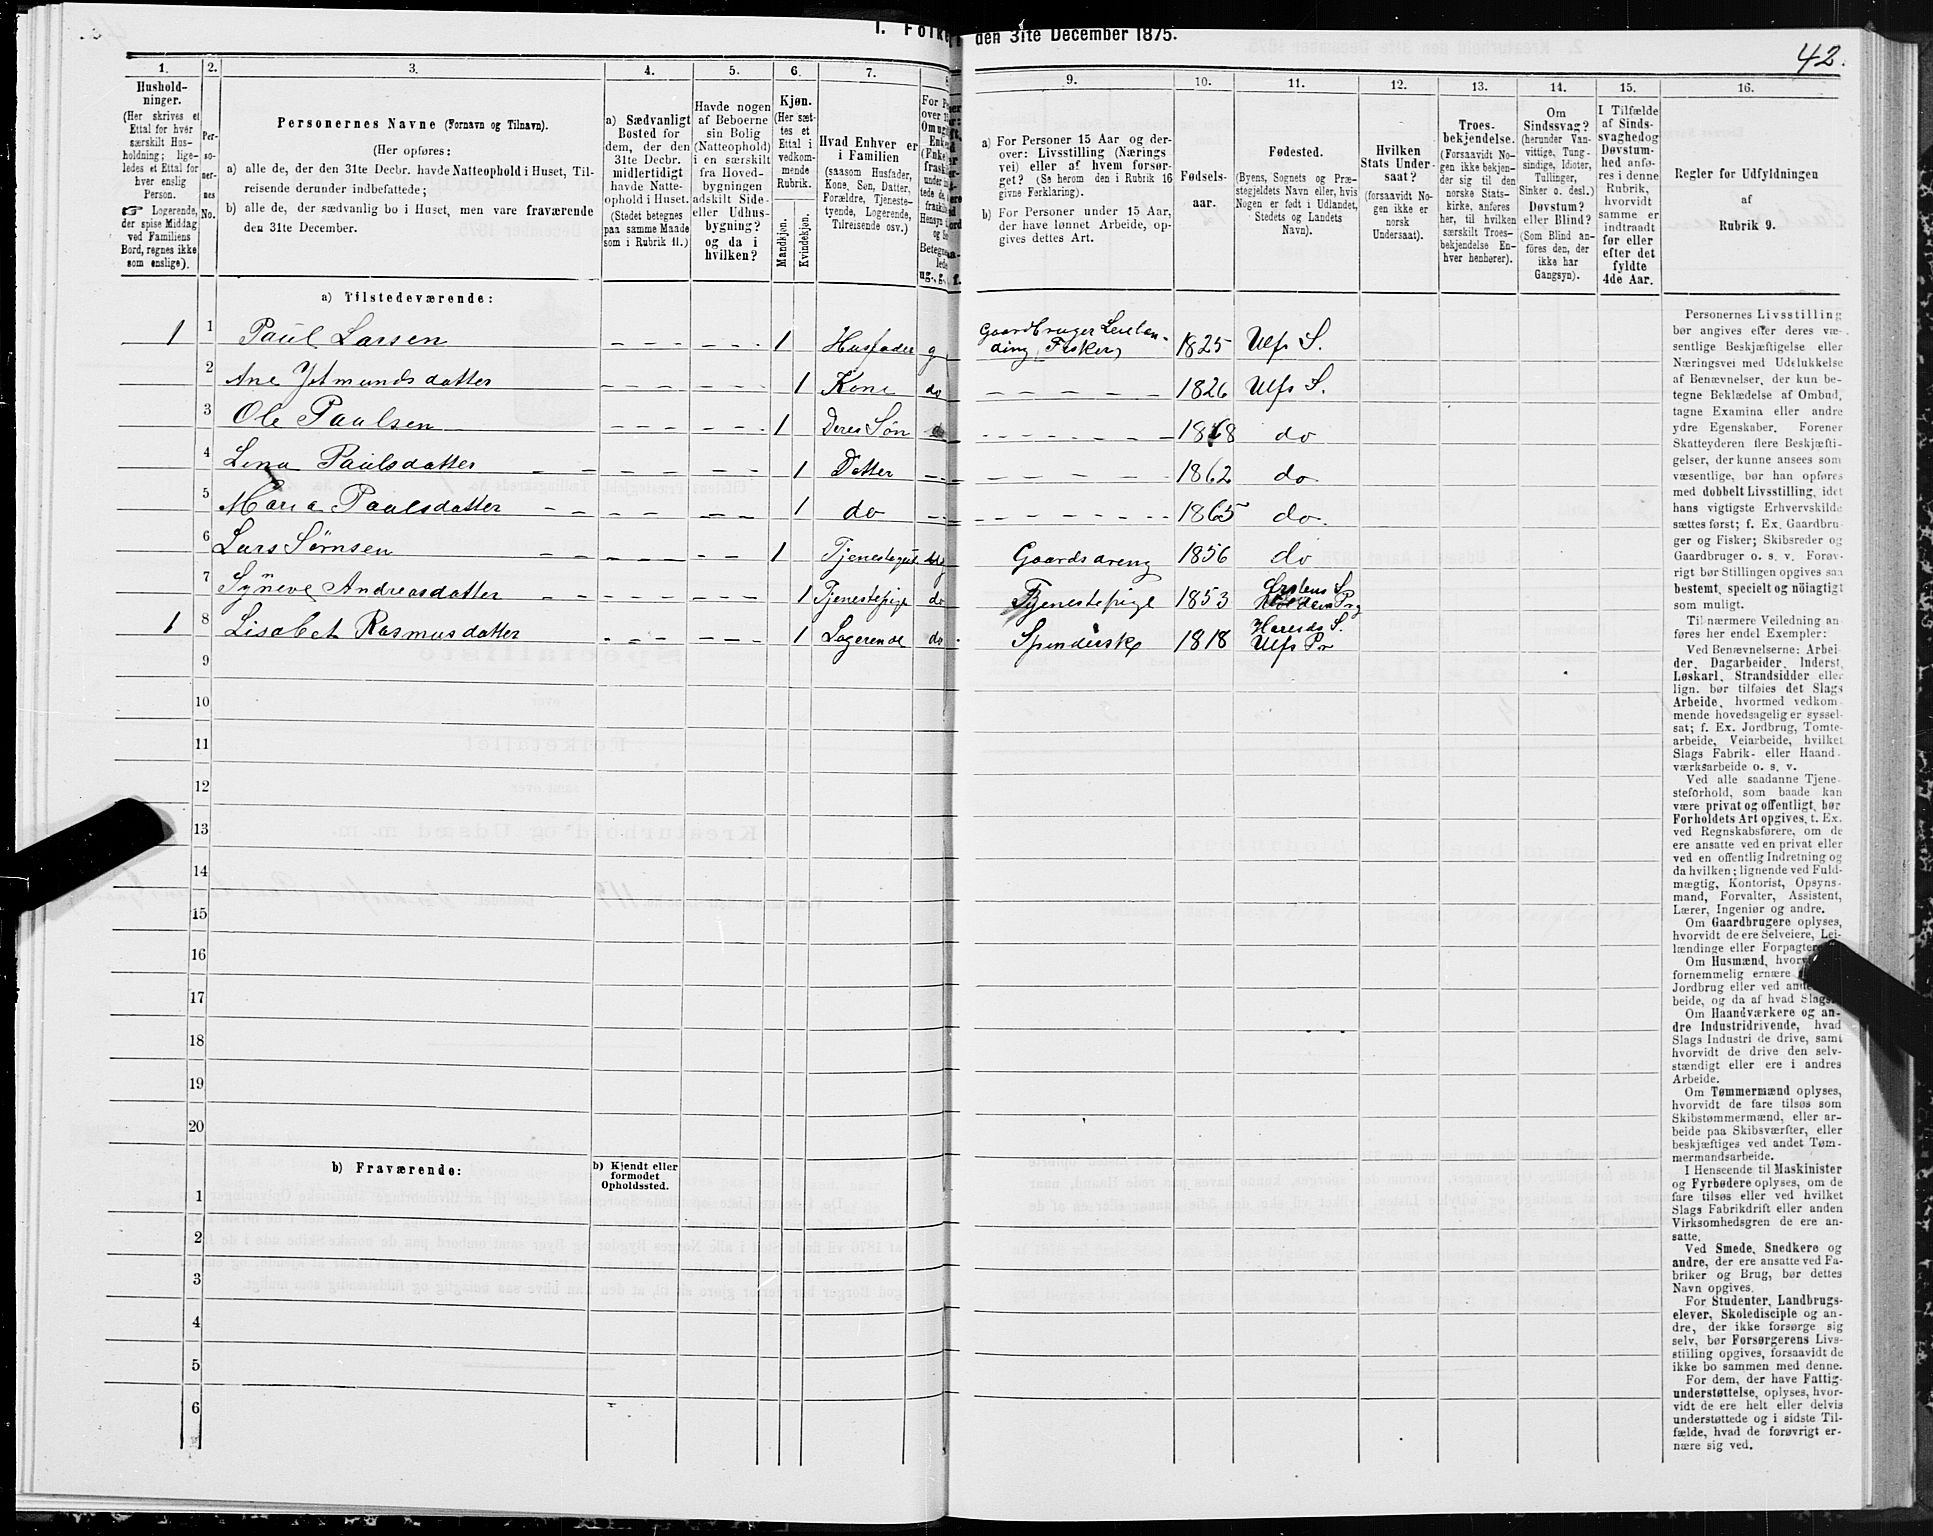 1. Folke
den 31te December 1875.
42.
1.
2.
3.
4.
5.
6.
7.
9.
10.
11.
12.
13.
14.
15.
16.
Hushold-
ninger.
(Her skrives et
Ettal for hver
særskilt Hus-
holdning; lige-
ledes et Ettal for
hver enslig
Person.
☞ Logerende,
der spise Middag
ved Familiens
Bord, regnes ikke
som enslige).
Per-
so-
ner-
nes
No.
Personernes Navne (Fornavn og Tilnavn).
(Her opføres:
a) alle de, der den 31te Decbr. havde Natteophold i Huset, Til-
reisende derunder indbefattede;
b) alle de, der sædvanlig bo i Huset, men vare fraværende
den 31te December.
a) Sædvanligt
Bosted for
dem, der den
31te Decbr.
midlertidigt
havde Natte-
ophold i Huset.
(Stedet betegnes
paa samme Maade
som i Rubrik 11.)
Havde nogen
af Beboerne
sin Bolig
(Natteophold)
i en særskilt
fra Hoved-
bygningen
adskilt Side-
eller Udhus-
bygning?
og da i
hvilken?
Kjøn.
(Her sæt-
tes et
Ettal i
vedkom-
mende
Rubrik.
Mandkjøn.
Kvindekjøn.
Hvad Enhver er
i Familien
(saasom Husfader,
Kone, Søn, Datter,
Forældre, Tjeneste-
tyende, Logerende,
Tilreisende osv.)
a) For Personer 15 Aar og der-
over: Livsstilling (Nærings-
vei) eller af hvem forsør-
get? (Se herom den i Rubrik 16
givne Forklaring).
b) For Personer under 15 Aar,
der have lønnet Arbeide, op-
gives dettes Art.
Fødsels-
aar.
Fødested.
(Byens, Sognets og Præ-
stegjeldets Navn eller, hvis
Nogen er født i Udlandet,
Stedets og Landets
Navn).
Hvilken
Stats Under-
saat?
(forsaavidt No-
gen ikke er
norsk
Undersaat).
Troes-
bekjendelse.
(Forsaavidt No-
gen ikke bekjen-
der sig til den
norske Stats-
kirke, anføres
her, til hvilken
særskilt Troes-
bekjendelse En-
hver henhører).
Om
Sindssvag?
(herunder Van-
vittige, Tung-
sindige, Idioter,
Tullinger,
Sinker o. desl.)
Døvstum?
eller Blind?
(Som Blind an-
føres den, der
ikke har
Gangsyn).
I Tilfælde
af Sinds-
svaghed og
Døvstum-
hed anfø-
res i denne
Rubrik,
hvorvidt
samme er
indtraadt
før eller
efter det
fyldte
4de Aar.
Regler for Udfyldningen
af
Rubrik 9.
a) Tilstedeværende:
1 1 Paul Larsen 1 Husfader g Gaardbruger Leilæn-
ding, Fisker, 1825 Ulfs S.
2 Ane Jetmundsdatter 1 Kone do 1826 Ulfs S.
3 Ole Paulsen 1 Deres Søn do 1868 do
4 Lina Paulsdatter 1 Datter 1862 do
5 Maria Paulsdatter 1 do 1865 do.
6 Lars Sørnsen 1 Gaardsdreng 1856 do
7 Syneve Andreasdatter 1 Tjenestepige do Tjenestepige 1853 Ørstens S
8 1 Lisabet Rasmusdatter 1 Logerende do Spinderske 1818 Hareids S.
Ulfs Pr
9
10
11
12
13
14
15
16
17
18
19
20
b) Fraværende:
b) Kjendt eller
formodet
Opholdssted.
1
2
3
4
5
6
Personernes Livsstilling
bør angives efter deres væ-
sentlige Beskjæftigelse eller
Næringsvei med Udelukkelse
af Benævnelser, der kun be-
tegne Beklædelse af Ombud,
tagne Examina eller andre
ydre Egenskaber. Forener
Skatteyderen flere Beskjæfti-
gelser, der kunne ansees som
væsentlige, bør han opføres
med dobbelt Livsstilling, idet
hans vigtigste Erhvervskilde
sættes først; f. Ex. Gaardbru-
ger og Fisker; Skibsreder og
Gaardbruger o. s. v. Forøv-
rigt bør Stillingen opgives saa
bestemt, specielt og nöiagtigt
som muligt.
Til nærmere Veiledning an-
føres her endel Exempler:
Ved Benævnelserne: Arbei-
der, Dagarbeider, Inderst,
Løskarl, Strandsidder eller
lign. bør tilføies det Slags
Arbeide, hvormed vedkom-
mende hovedsagelig er syssel-
sat; f. Ex. Jordbrug, Tomte-
arbeide, Veiarbeide, hvilket
Slags Fabrik- eller Haand-
værksarbeide o. s. v.
Ved alle saadanne Tjene-
steforhold, som baade kan
være privat og offentligt, bør
Forholdets Art opgives, t. Ex.
ved Regnskabsførere, om de
ere ansatte ved en privat eller
ved en offentlig Indretning og
da hvilken; lignende ved Fuld-
mægtig, Kontorist, Opsyns-
mand, Forvalter, Assistent,
Lærer, Ingeniør og andre.
Om Gaardbrugere oplyses,
hvorvidt de ere Selveiere, Lei-
lændinge eller
Om Husmænd,
fornemmelig ernære
Jordbrug eller ved
beide, og da af hvad
Om Haandværkere og an-
dre Industridrivende, hvad
Slags Industri de drive, samt
hvorvidt de drive den selv-
stændigt eller ere i andres
Arbeide.
Om Tømmermænd oplyses,
hvorvidt de fare tilsøs som
Skibstømmermænd, eller ar-
beide paa Skibsværfter, eller
beskjæftiges ved andet Tøm-
mermandsarbeide.
I Henseende til Maskinister
og Fyrbødere oplyses, om de
fare tilsøs eller ved hvilket
Slags Fabrikdrift eller anden
Virksomhedsgren de ere an-
satte.
Ved Smede, Snedkere og
andre, der ere ansatte ved Fa-
briker og Brug, bør dettes
Navn opgives.
For Studenter, Landbrugs-
elever, Skoledisciple og an-
dre, der ikke forsørge sig
selv, bør Forsørgerens Livs-
stilling opgives, forsaavidt de
ikke bo sammen med denne.
For dem, der have Fattig-
understøttelse, oplyses, hvor-
vidt de ere helt eller delvis
understøttede og i sidste Til-
fælde, hvad de forøvrigt er-
nære sig ved.